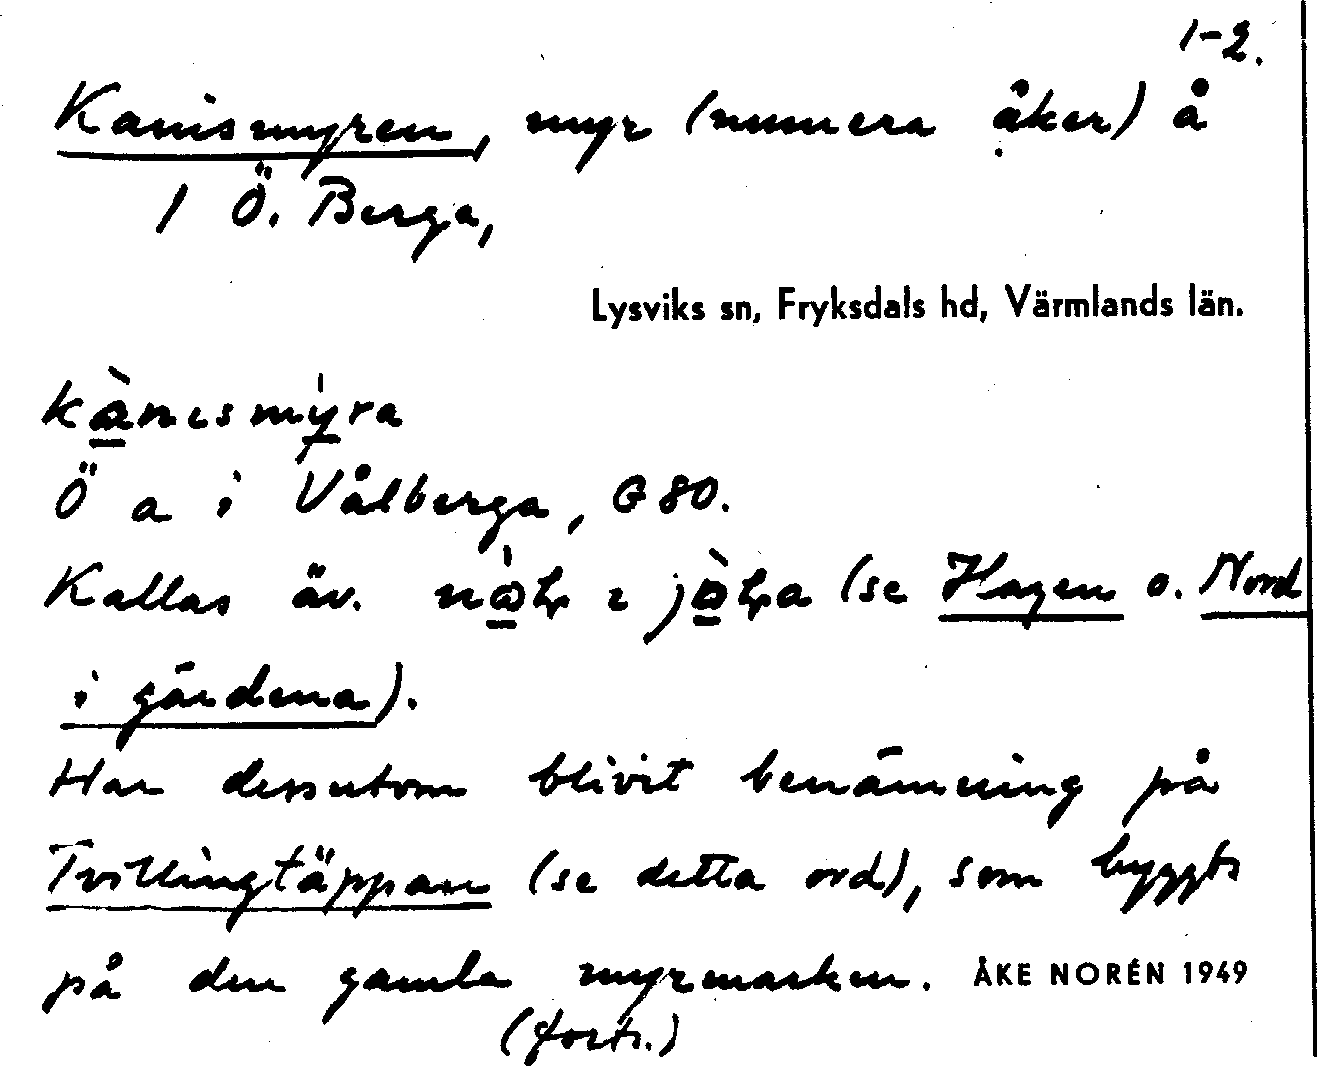 1-2.
Kanismyren, myr (numera åker) å
1 Ö. Berga,
Lysviks sn, Fryksdals hd, Värmlands län.
Ö a i Vålberga, G 80.
Kallas äv. (se Hagen o. Nord
i gärdena).
Har dessutom blivit benämning på
Tvillingtäppan (se detta ord), som byggts
på den gamla myrmarken. ÅKE NORÉN 1949
(forts.)